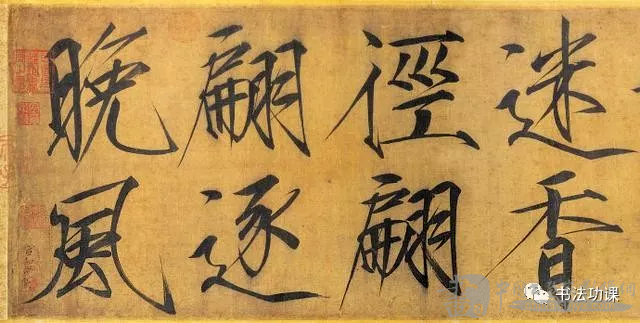 迷香
徑翩
翩逐
晚風
书法功课